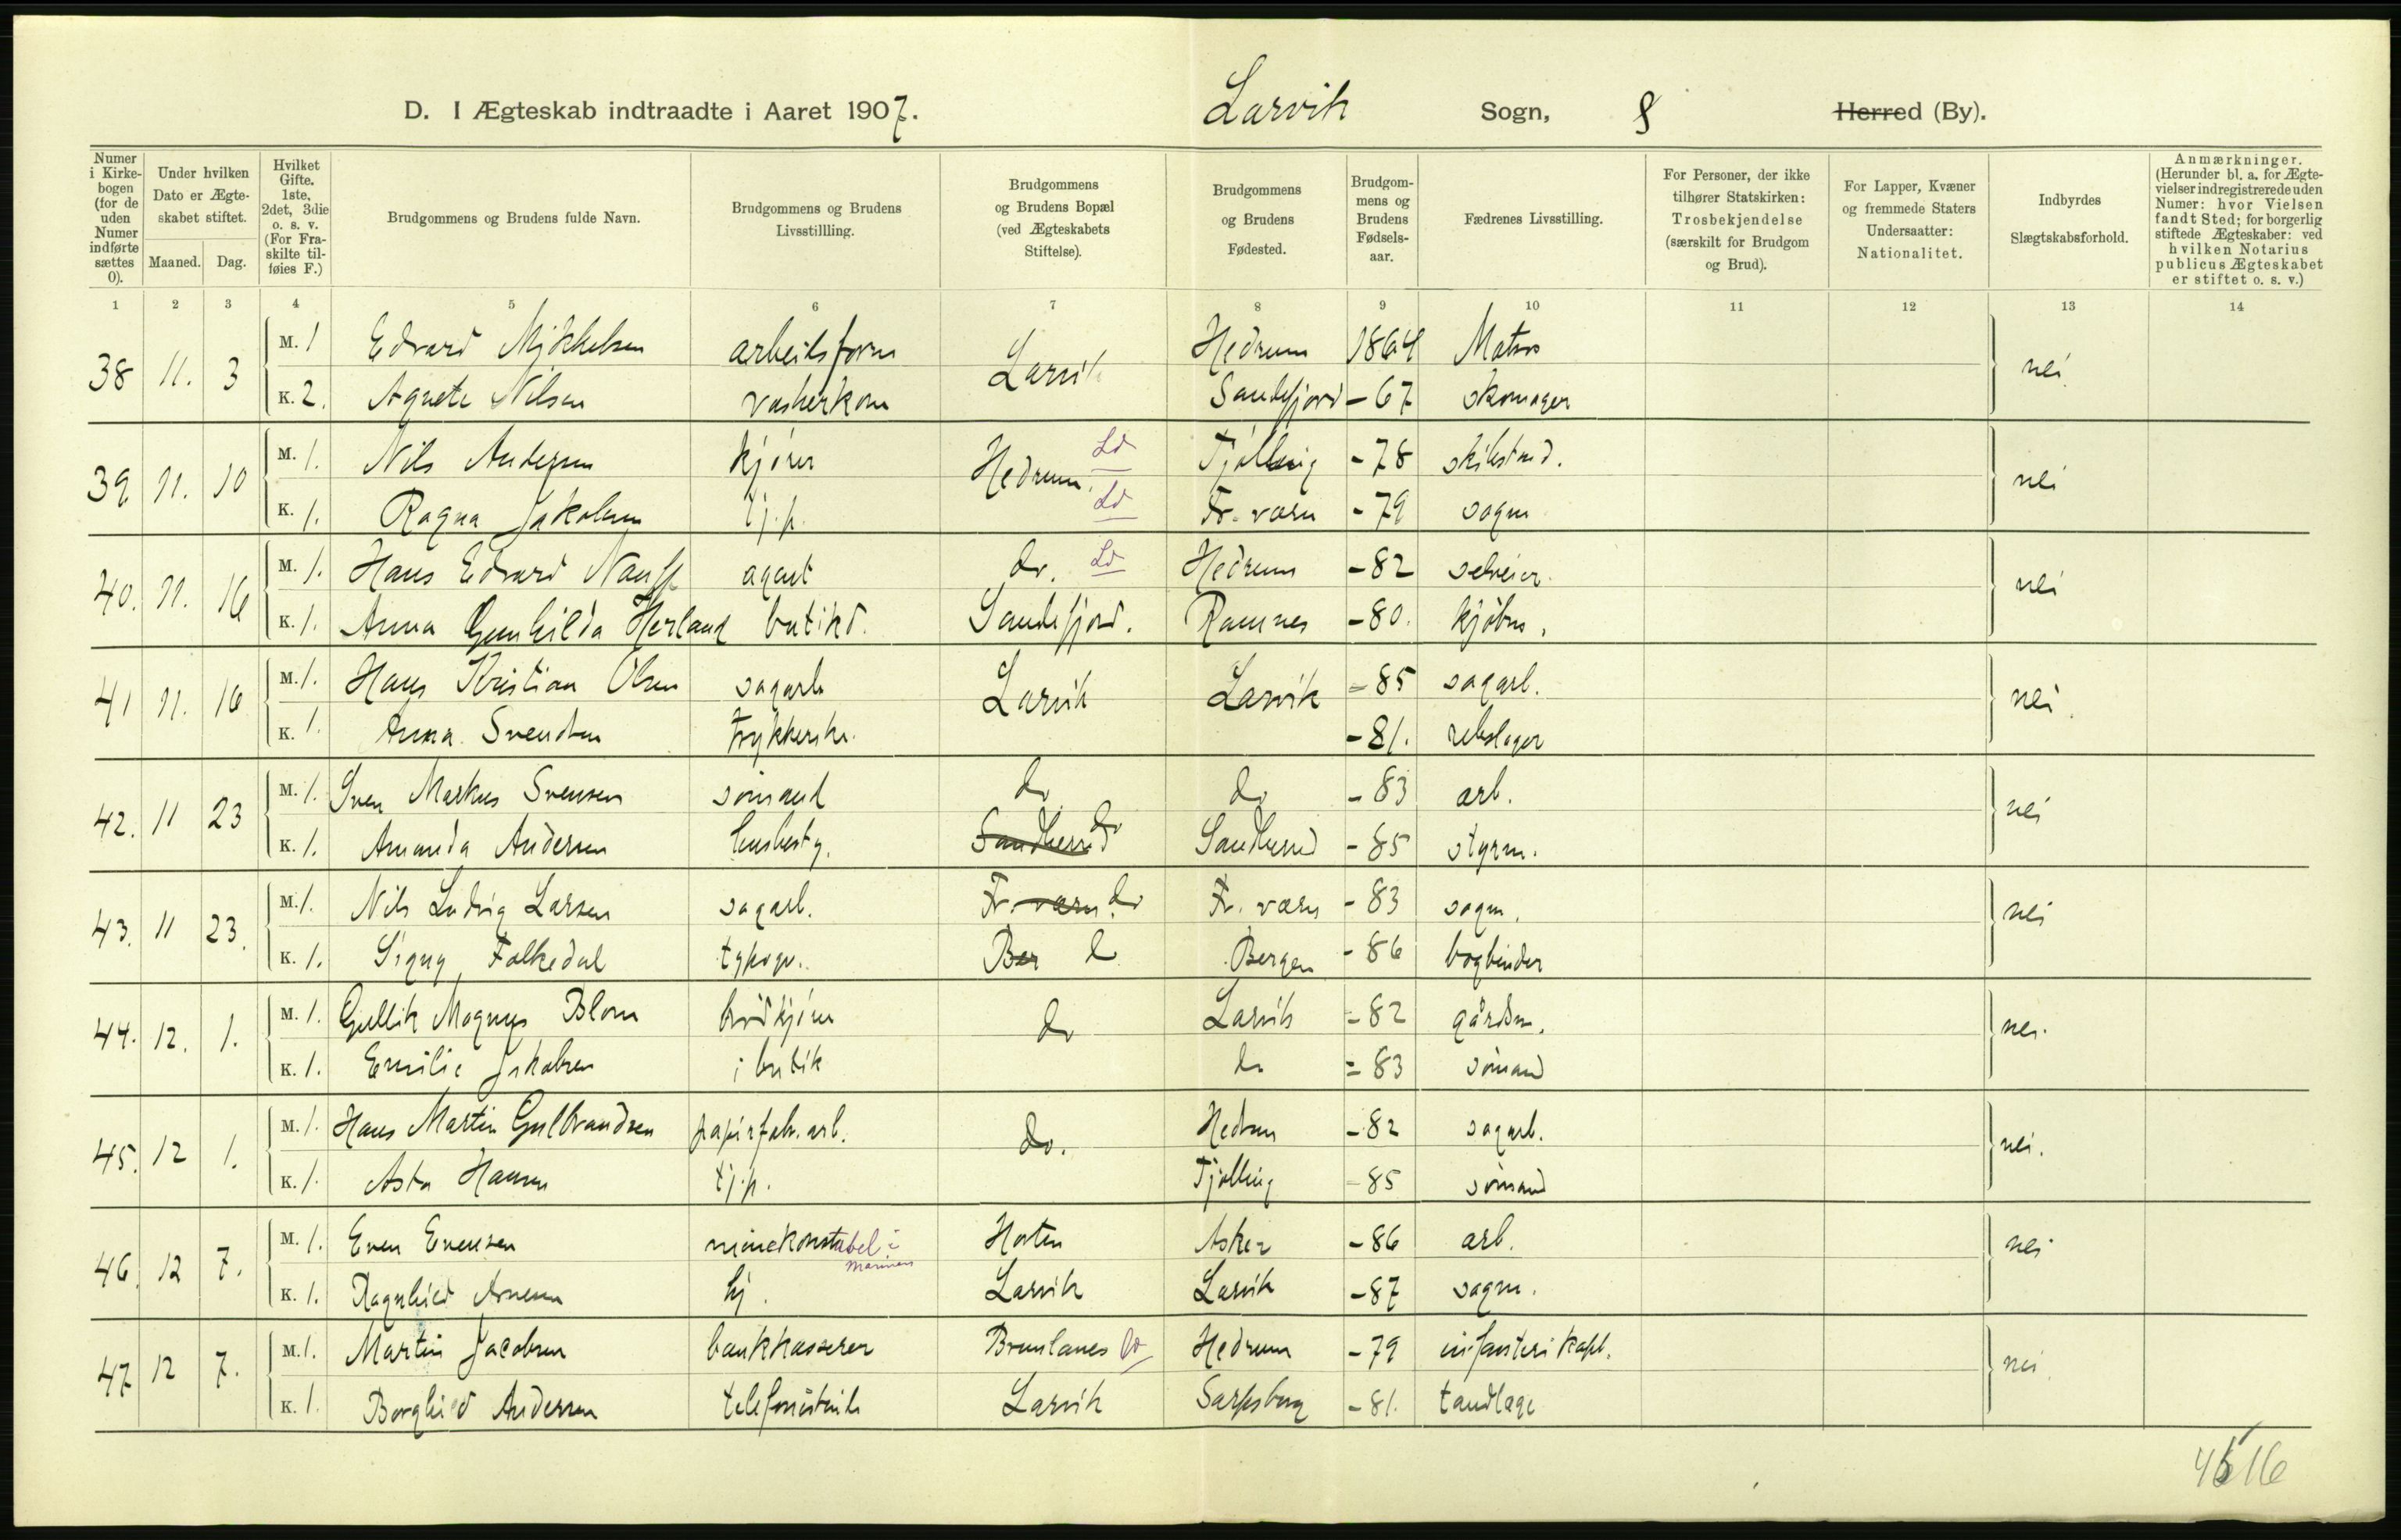 D. I Ægteskab indtraadte i Aaret 1907. Larvik Sogn, Herred (By).
Numer i Kirkebogen (for de uden Numer indførte sættes 0).
Under hvilken Dato er Ægteskabet stiftet.
Maaned. Dag.
Hvilket Gifte. 1ste, 2det, 3die o. s. v. (For Fraskilte tilføies F.)
Brudgommens og Brudens fulde Navn.
Brudgommens og Brudens Livsstillling.
Brudgommens og Brudens Bopæl (ved Ægteskabets Stiftelse).
Brudgommens og Brudens Fødested.
Brudgommens og Brudens Fødselsaar.
Fædrenes Livsstilling.
For Personer, der ikke tilhører Statskirken: Trosbekjendelse (særskilt for Brudgom og Brud).
For Lapper, Kvæner og fremmede Staters Undersaatter: Nationalitet.
Indbyrdes Slægtskabsforhold.
Anmærkninger. (Herunder bl. a. for Ægtevielser indregistrerede uden Numer: hvor Vielsen fandt Sted; for borgerlig stiftede Ægteskaber: ved hvilken Notarius publicus Ægteskabet er stiftet o. s. v.)
1 2 3 4 5 6 7 8 9 10 11 12 13 14
38 11. 3 M. 1 Edvard Mykkelsen arbeidsform Larvik Hedrum 1864 Matros nei
K. 2. Agnete Nilsen vaskerkone Sandefjord -67 skomager
39 11. 10 M. 1. Nils Andersen kjører Hedrum Ld Tjølling -78 skibstmd. nei
K. 1. Ragna Jakobsen tj.p. Ld Fr. værn -79 sagm
40. 11. 16 M. 1. Hans Edvard Nauff agent do. Ld Hedrum -82 selveier. nei
K. 1. Anna Gunhilda Herland butikd. Sandefjord. Ramnes -80. kjøbm.
41 11. 16 M. 1. Hans Kristian Olsen sagarb Larvik Larvik -85 sagarb. nei.
K. 1. Anna Svendsen trykkerske. -81. rebslager
42. 11 23 M. 1. Sven Markus Svensen sømand do do -83 arb. nei
K. 1. Amanda Andersen husbesty. Sandherred do Sandherred -85 styrm.
43. 11 23. M. 1. Nils Ludvig Larsen sagarb. Fr. værn do Fr. værn -83 sagm. nei
K. 1. Signy Falkedal typogr. Ber do Bergen -86 bogbinder
44. 12. 1. M. 1. Gullik Magnus Blom brødkjører do Larvik -82 gårdbr. nei.
K. 1. Emilie Jakobsen i butik do -83 sømand
45. 12 1. M. 1. Hans Martin Gulbrandsen papirfabr. arb. do. Hedrum -82 sagarb. nei.
K. 1. Asta Hansen tj.p. Tjølling -85 sømand
46. 12 7. M. 1. Even Evensen minekonstabel i marinen Horten Asker -86 arb. nei
K. 1. Ragnhild Arnesen hj. Larvik Larvik -87 sagm.
47 12 7. M. 1. Martin Jacobsen bankkasserer Brunlanes Ld Hedrum -79 infanterikapt. nei.
K. 1. Borghild Andersen telefonistinde Larvik Sarpsborg -81. tandlæge
16